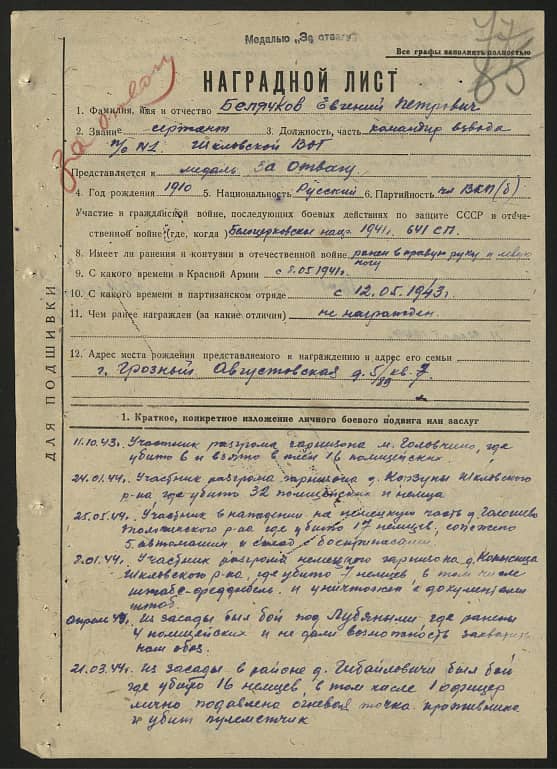 Медалью „За отвагу"
77
85
Все графы заполнять полностью
За отвагу
НАГРАДНОЙ ЛИСТ
1. Фамилия, имя и отчество Белячков Евгений Петрович
2. Звание сержант 3. Должность, часть командир взвода
п/о №1 Шкловской ВОГ
Представляется к медаль За Отвагу
4. Год рождения 1910 5. Национальность Русский 6. Партийность чл ВКП(б)
Участие в гражданской войне, последующих боевых действиях по защите СССР и отече-
ственной войне (где, когда) Белоцерковское нап. 1941г. 641 СП.
8. Имеет ли ранения и контузии в отечественной войне ранен в правую руку и левую
ногу
9. С какого времени в Красной Армии с 8.05.1941г.
10. С какого времени в партизанском отряде с 12.05.1943г.
11. Чем ранее награжден (за какие отличия) не награжден.
12. Адрес места рождения представляемого к награждению и адрес его семьи
г. Грозный Августовская д. 5/89 кв. 7
ДЛЯ ПОДШИВКИ
1. Краткое, конкретное изложение личного боевого подвига или заслуг
11.10.43г. Участник разгрома гарнизона м. Головчино, где
убито 8 и взято в плен 16 полицейских
24.01.44г. Участник разгрома гарнизона д. Корзуны Шкловского
р-на где убито 32 полицейских и немца
25.05.44г. Участник в нападении на немецкую часть д.
р-на где убито 17 немцев, сожжено
5 автомашин и склад с боеприпасами.
8.01.44г. Участник разгрома немецкого гарнизона д.
Шкловского р-на, где убито 7 немцев, в том числе
штабс-фельдфебель и уничтожен с документами
штаб.
Из засады был бой под Лубянами, где ранены
4 полицейских и не дали возможность захватить
нам обоз.
21.03.44г. Из засады в районе д. Гибайловичи был бой
где убито 16 немцев, в том числе 1 офицер
лично подавлена огневая точка противника
и убит пулеметчик